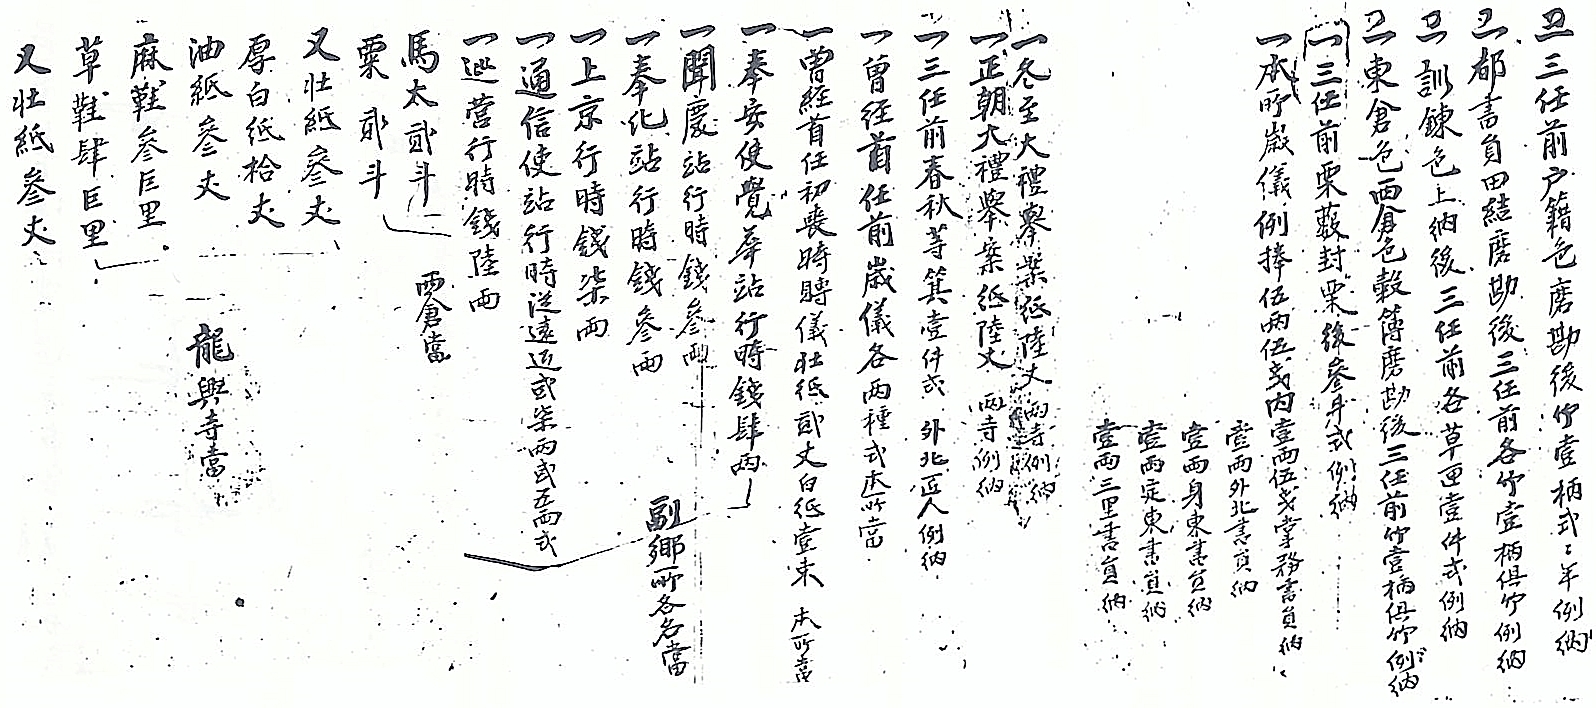 一三任前戶籍色磨勘後竹壹柄式式年例納
一都書員田結磨勘後三任前各竹壹柄俱竹例納
一訓鍊色上納後三任前各草匣壹件式例納
一東倉色西倉色穀簿磨勘後三任前竹壹柄俱竹例納
一三任前栗藙封栗後參斗式例納
一本所歲儀例捧伍兩伍戔內壹兩伍戔掌務書員納
壹兩外北書員納
壹兩身東書員納
壹兩定東書員納
壹兩三里書員納
一冬至大禮擧案紙陸丈 兩寺例納
一正朝大禮擧案紙陸丈 兩寺例納
一三任前春秋等箕壹件式 外北匠人例納
一曾經首任前歲儀各兩種式本所當
一曾經首任初喪時賻儀壯紙貳丈白紙壹束 本所當
一奉安使覺華站行時錢肆兩
一聞慶站行時錢參兩
一奉化站行時錢參兩
一上京行時錢柒兩
一通信使站行時從遠近或柒兩或五兩式
副鄕所各名當
一巡營行時錢陸兩
馬太貳斗
栗 貳斗
西倉當
又壯紙參丈
厚白紙拾丈
油紙參丈
麻鞋參巨里
草鞋肆巨里
龍興寺當
又壯紙參丈